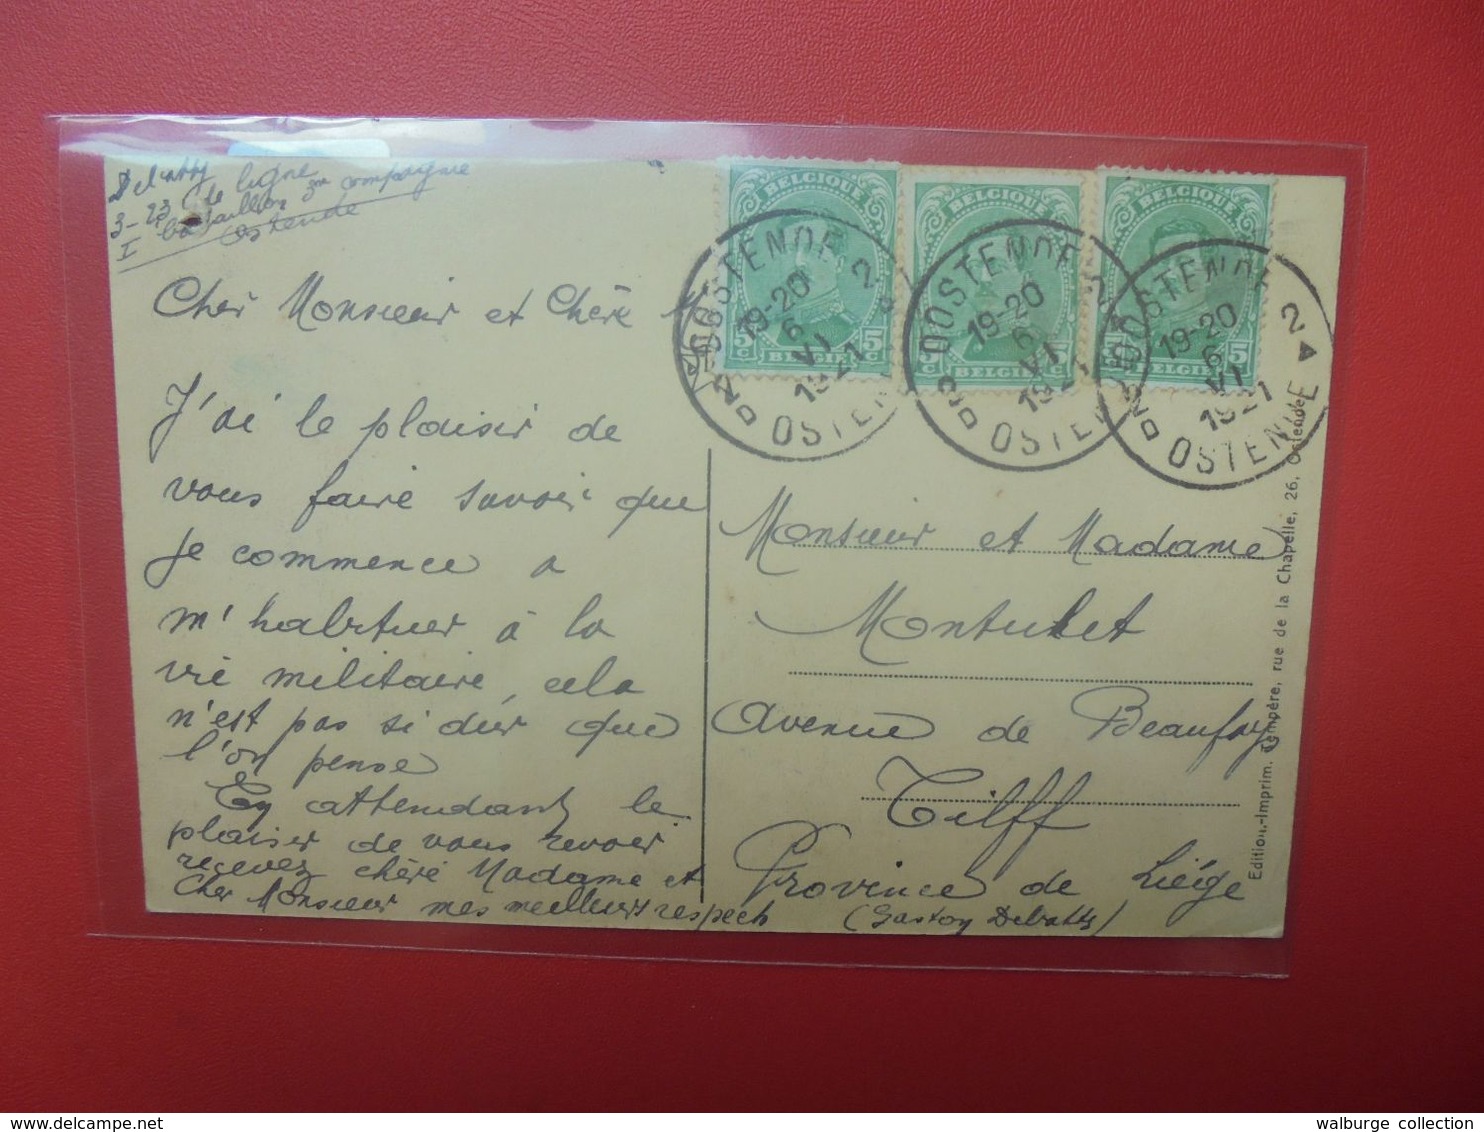 3-23 de ligne
I bataillon 3me compagnie
Ostende
Cher Monsieur et Chère M
J'ai le plaisir de
vous faire savoir que
je commence a
m'habituer à la
vie militaire, cela
n'est pas si dur que
l'on pense
En attendant le
plaisir de vous revoir
recevez chère Madame et
Cher Monsieur mes meilleurs respech
BELGIQUE
5c 5c
BELGIE
BELGIQUE
c 5c
BELGIE
BELGIQUE
5
BELGIE
OOSTENDE 2
19-20
6
VI
1921
OSTEN
OOSTENDE 2
19-20
6
VI
1921
OSTEN
OOSTENDE 2
19-20
6
VI
1921
OSTENDE
Monsieur et Madame
Avenue de Beaufays
Tilff
Province de Liége
(Gaston Debatty)
Edition-Imprim. Tempère, rue de la Chapelle, 26, Ostende
walburge collection
delcampe.net